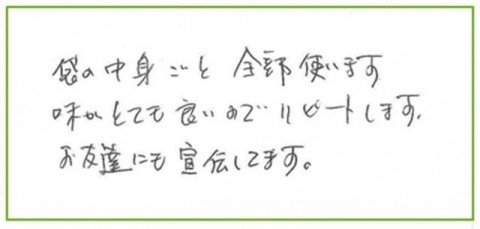 袋の中身ごと 全部使います
味がとても良いのでリピートします.
お友達にも宣伝してます。